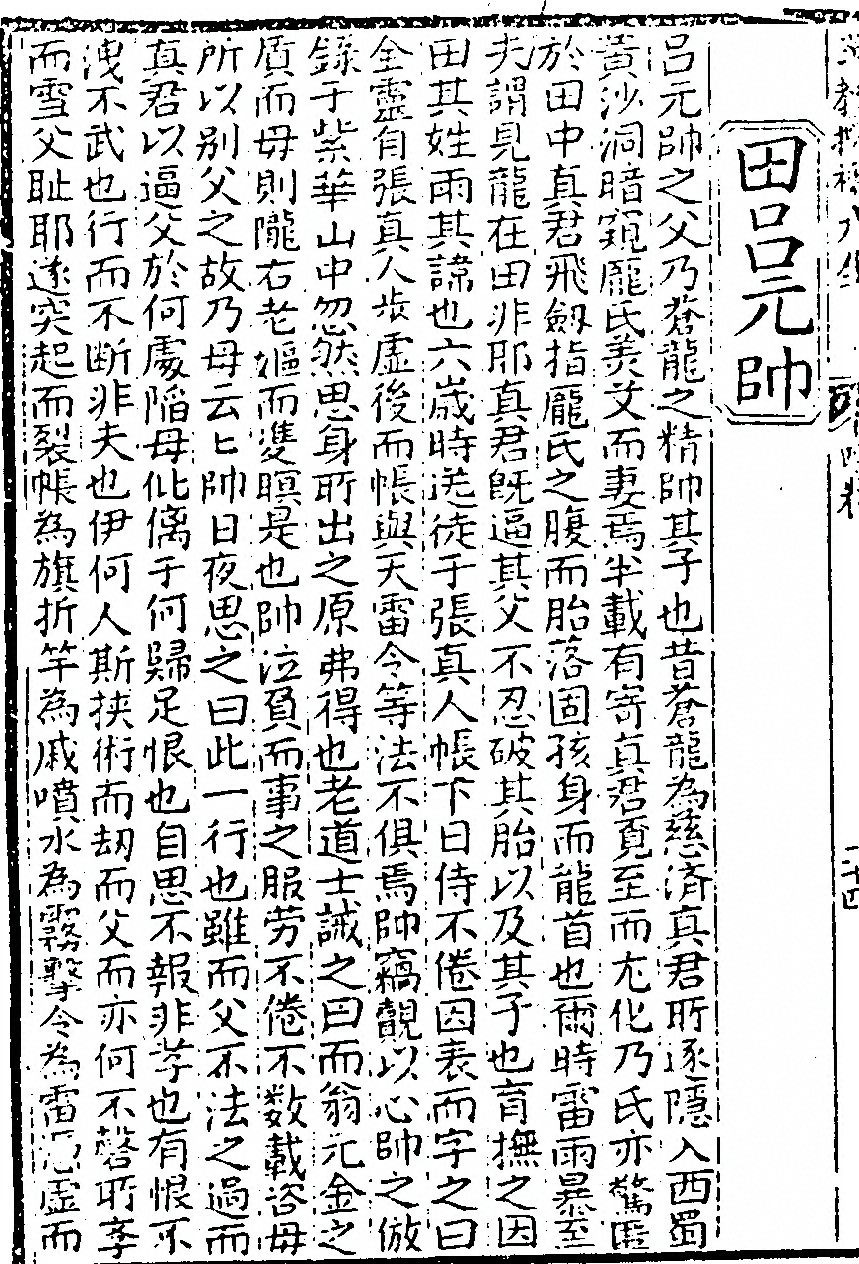 田呂元帥
呂元帥之父乃蒼龍之精帥其子也昔蒼龍為慈済真君所逐隱入西蜀
黃沙洞暗窺龐氏美艾而妻焉半載有寄真君覓至而尢化乃氏亦驚匿
於田中真君飛劔指龐氏之腹而胎落固孩身而龍首也爾時雷雨暴至
夫謂見龍在田非耶真君旣逼其父不忍破其胎以及其子也育撫之因
田其姓雨其諱也六歲時送徒于張真人帳下日侍不倦因表而字之曰
全靈自張真人步虛後而帳與天雷令等法不俱焉帥竊覩以心帥之倣
錄于紫華山中忽然思身所出之原弗得也老道士誡之曰而翁元金之
質而母則隴右老嫗而䨇瞑是也帥泣負而事之服劳不倦不数載咨母
所以别父之故乃母云匕帥日夜思之曰此一行也雖而父不法之過而
真君以逼父於何處陷母仳㒧于何歸足恨也自思不報非孝也有恨不
洩不武也行而不断非夫也伊何人斯挟術而刧而父而亦何不罄所孝
而雪父耻耶遂突起而裂帳為旗折竿為戚噴水為霧擊令為雷憑虛而
二十四